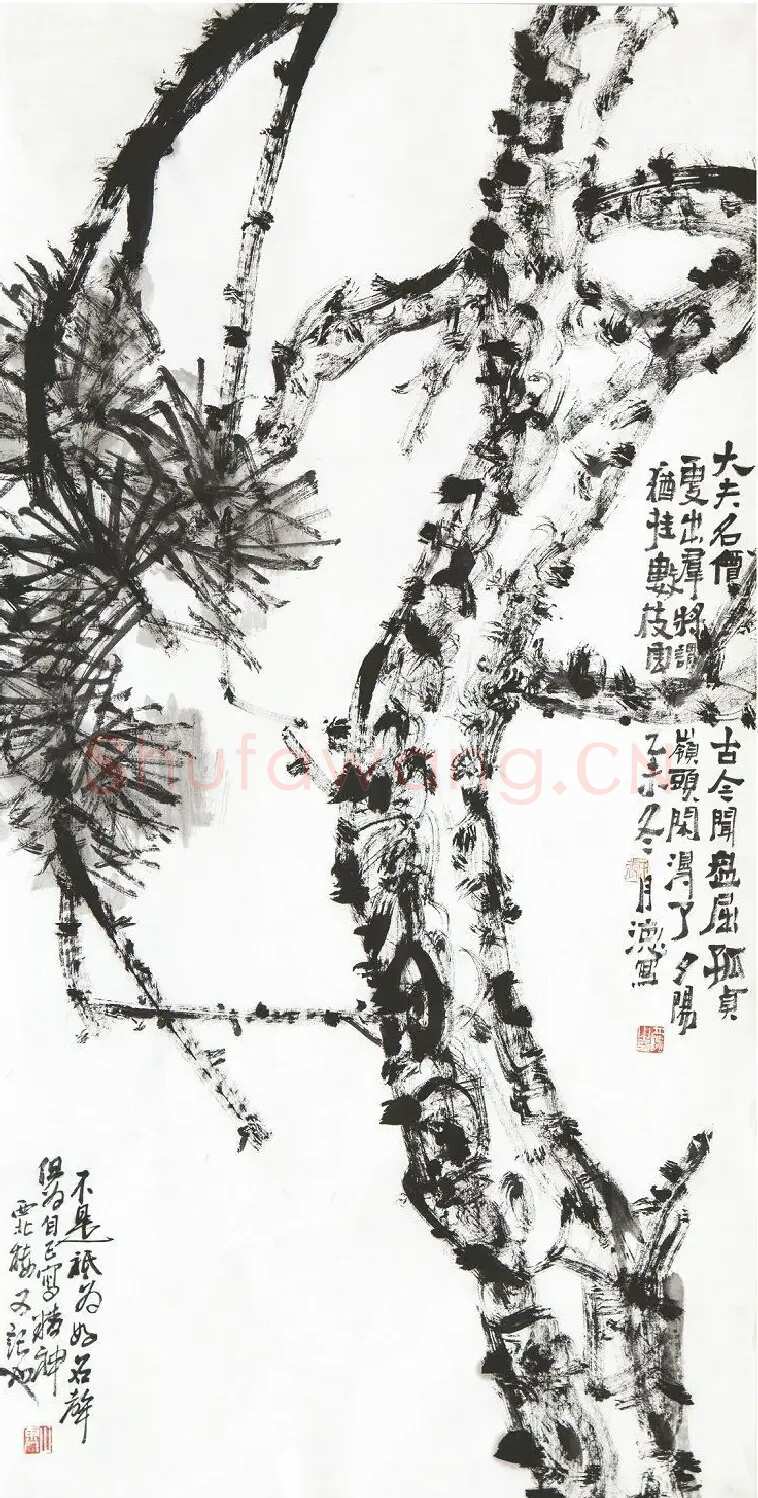 大夫名價古今聞盤屈孤貞
更出羣將謂嶺頭閑得了夕陽
猶挂數枝
乙未冬月寫
不是祇為名聲
但為自己寫精神
西北樓又記
Shufawang.CN